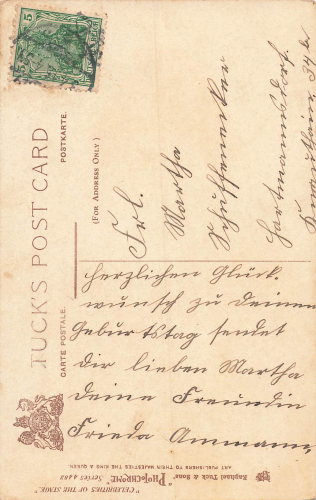 5
TUCK'S POST CARD
CARTE POSTALE.
POSTKARTE.
(FOR ADDRESS ONLY)
Frl.
Martha
Hartmannsdorf.
34 b
herzlichen Glück-
wunsch zu Deinem
Geburtstag sendet
dir lieben Martha
deine Freundin
Frieda Ammann
Raphael Tuck & Sons'
"PHOTOCHROME"
"CELEBRITIES OF THE STAGE"
ART PUBLISHERS TO THEIR MAJESTIES THE KING & QUEEN